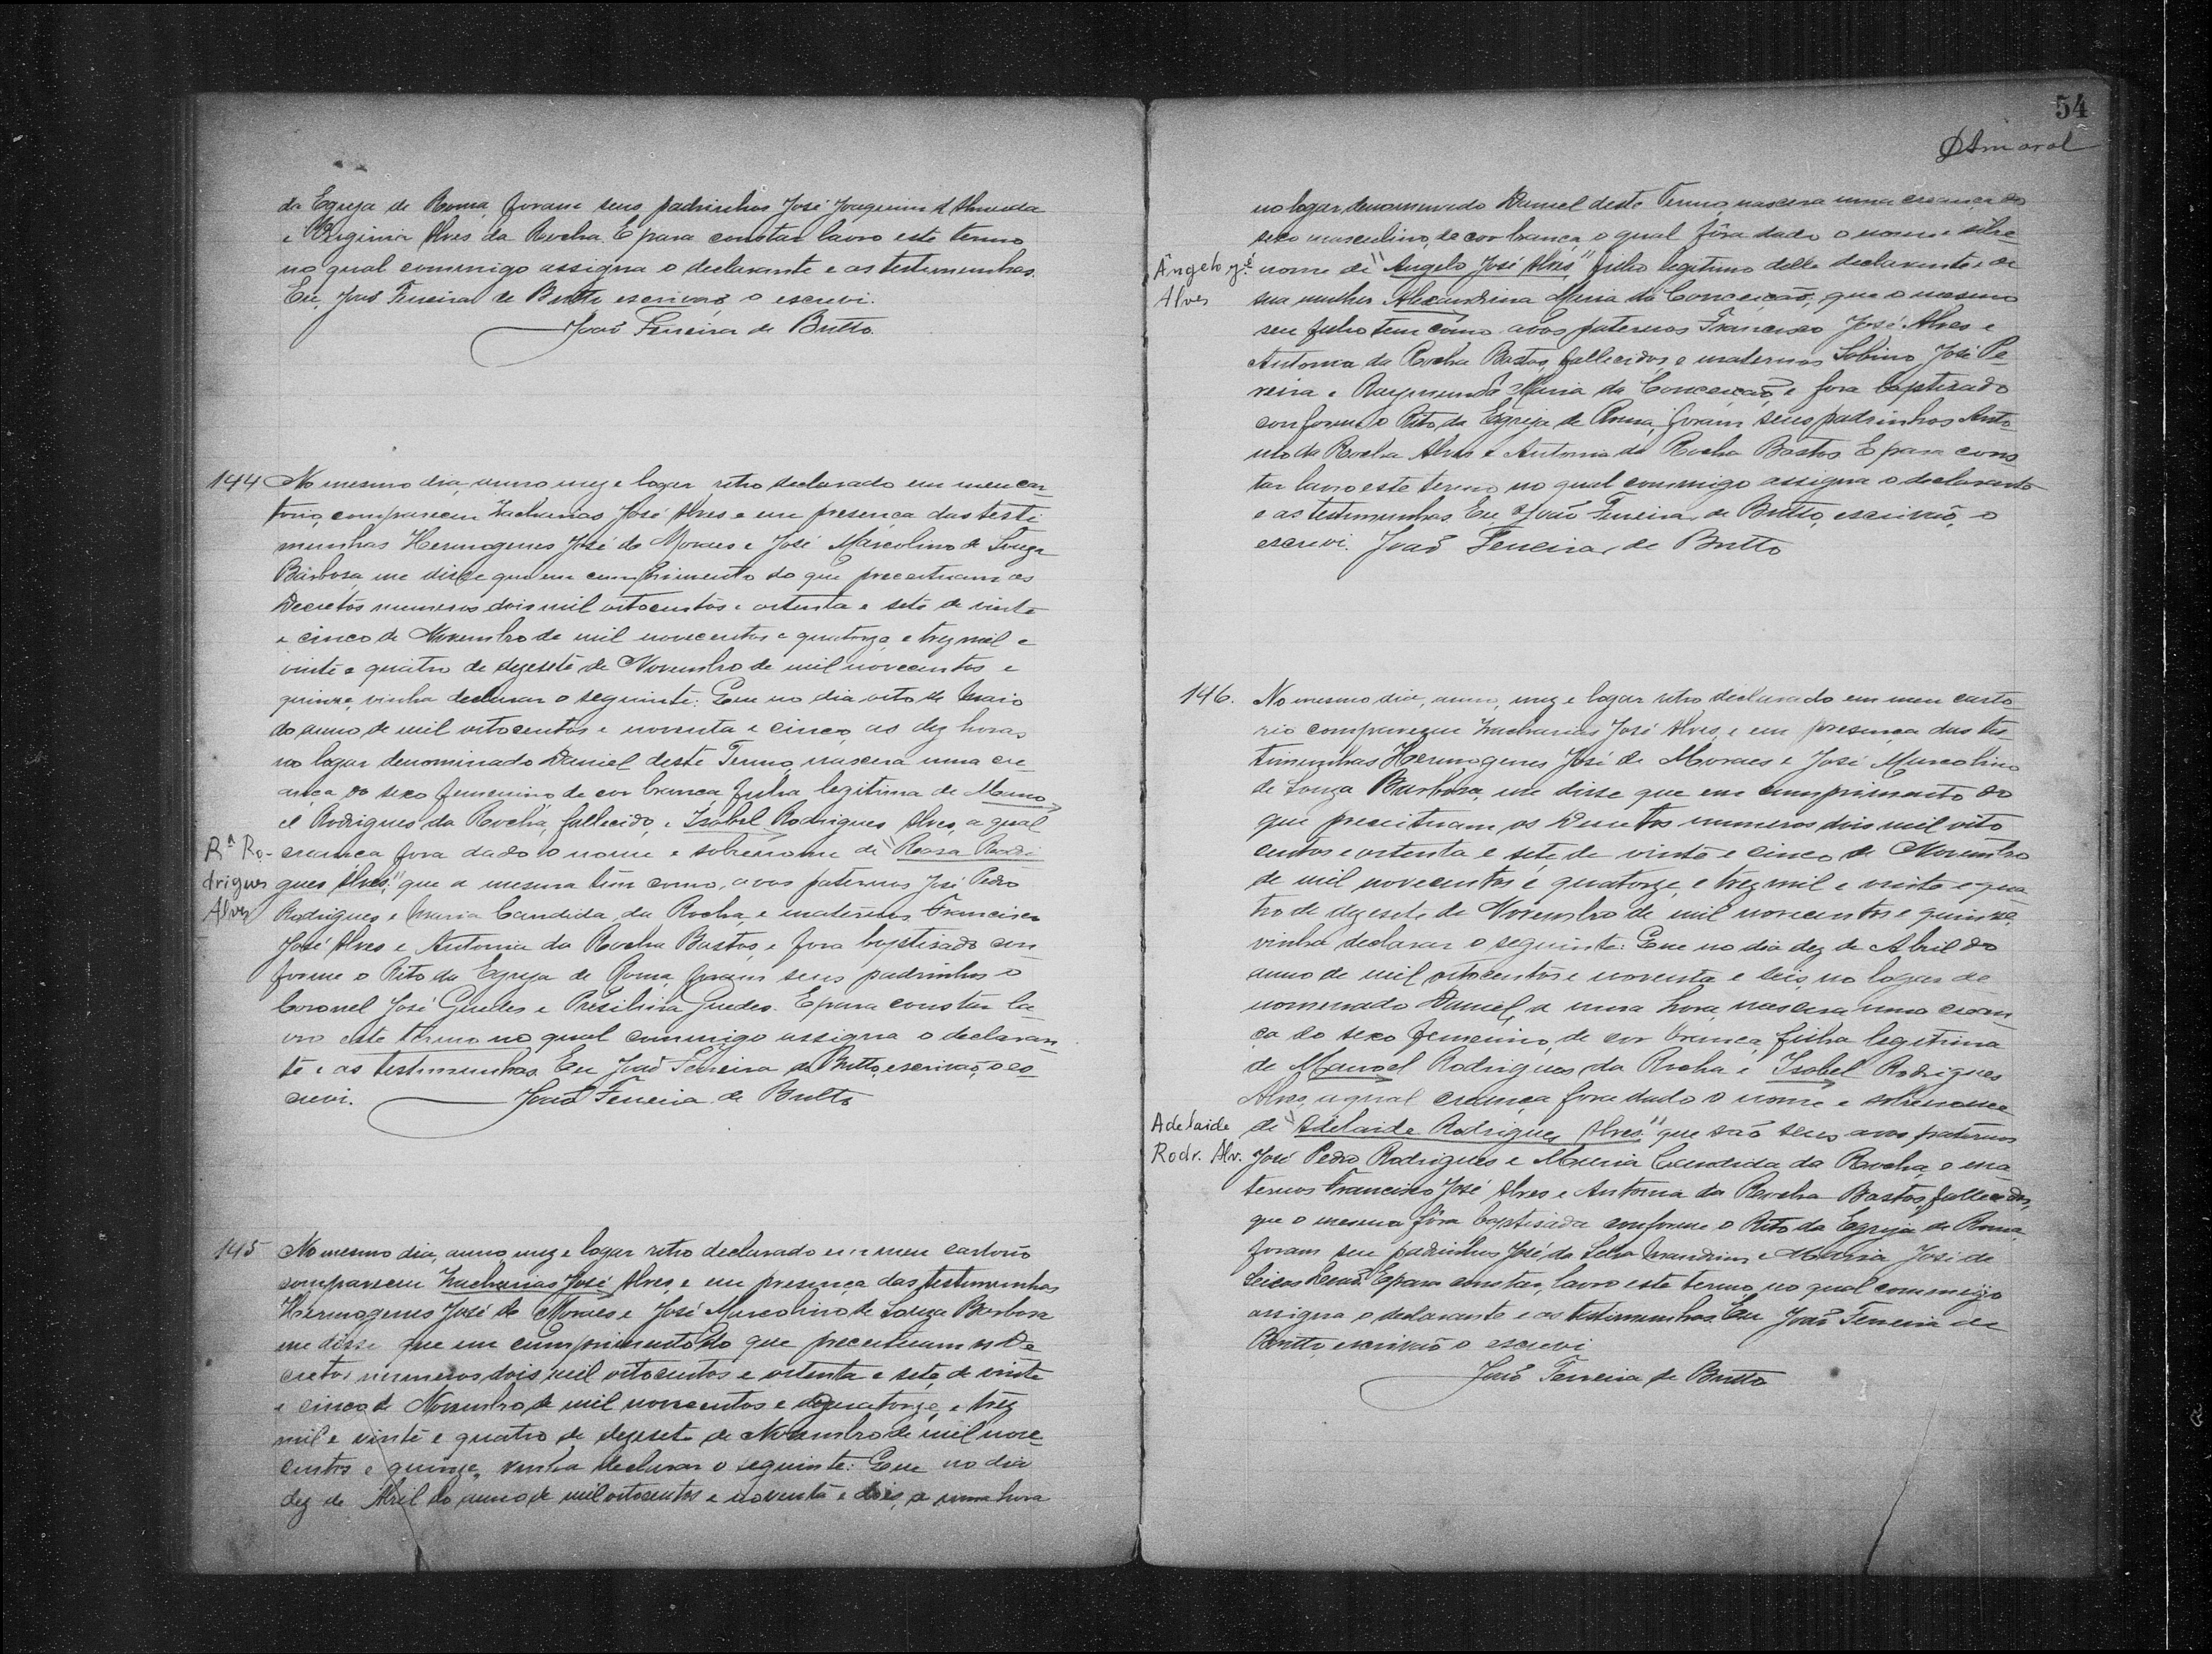 da Egreja de Roma, foram seus padrinhos José Joaquim d'Almeida
e Virginia Alves da Rocha. E para constar lavro este termo
no qual commigo assigna o declarante e as testemunhas.
Eu, João Ferreira de Britto escrivão o escrevi.
João Ferreira de Britto.
144 No mesmo dia, anno mez e logar retro declarado em meu car-
torio, compareceu Zacharias José Alves e em presença das teste
munhas Hermogenes José de Moraes e José Marcolino de Souza
Barbosa, me disse que em cumprimento do que preceituam os
Decretos numeros dois mil oitocentos e oitenta e sete de vinte
e cinco de Novembro de mil novecentos e quatorze, e trez mil e
vinte e quatro de dezesete de Novembro de mil novecentos e
quinze, vinha declarar o seguinte: Que no dia oito de Maio
do anno de mil oitocentos e noventa e cinco, as dez horas,
no logar denominado Daniel deste Termo, nascera uma cre-
ança do sexo femenino de cor branca filha legitima de Mano-
el Rodrigues da Rocha, fallecido, e Isabel Rodrigues Alves, a qual
Rª Ro- creança fora dado o nome e sobrenome de "Rosa Rodri
drigues gues Alves," que a mesma tem como avos paternos José Pedro
Alves Rodrigues e Maria Candida da Rocha, e maternos Francisco
José Alves e Antonia da Rocha Bastos, e fora baptisado con
forme o Rito da Egreja de Roma, foram seus padrinhos o
Coronel José Guedes e Presilina Guedes. E para constar la-
vro este termo no qual commigo assigna o declaran-
te e as testemunhas. Eu João Ferreira de Britto, escrivão, o es-
crevi. João Ferreira de Britto
145 No mesmo dia, anno mez e logar retro declarado em meu cartorio
compareceu Zacharias José Alves, e em presença das testemunhas
Hermogenes José de Moraes e José Marcolino de Souza Barbosa
me disse que em cumprimento do que preceituam os De
cretos numeros dois mil oitocentos e oitenta e sete, de vinte
e cinco de Novembro de mil novecentos e quatorze, e trez
mil e vinte e quatro de dezesete de Novembro de mil nove-
centos e quinze, vinha declarar o seguinte: Que no dia
dez de Abril do anno de mil oitocentos e noventa e dois, a uma hora
54
DAmaral
no logar denominado Daniel deste Termo, nascera uma creança do
sexo masculino, de cor branca, o qual fôra dado o nome e sobre-
Ângelo J.é nome de "Angelo José Alves" filho legitimo delle declarante e de
Alves sua mulher Alexandrina Maria da Conceição, que o mesmo
seu filho tem como avos paternos Francisco José Alves e
Antonia da Rocha Bastos, fallecidos, e maternos Sabino José Pe-
reira e Raymunda Maria da Conceição e fora baptisado
conforme o Rito da Egreja de Roma, foram seus padrinhos Anto-
nio da Rocha Alves e Antonia da Rocha Bastos. E para cons-
tar lavro este termo no qual commigo assigna o declarante
e as testemunhas. Eu, João Ferreira de Britto, escrivão, o
escrevi. João Ferreira de Britto
146. No mesmo dia, anno, mez e logar retro declarado em meu carto
rio compareceu Zacharias José Alves, e em presença das tes-
temunhas Hermogenes José de Moraes e José Marcolino
de Souza Barbosa, me disse que em cumprimento do
que preceituam os Decretos numeros dois mil oito
centos e oitenta e sete, de vinte e cinco de Novembro
de mil novecentos e quatorze, e trez mil e vinte e qua-
tro de dezesete de Novembro de mil novecentos e quinze,
vinha declarar o seguinte: Que no dia dez de Abril do
anno de mil oitocentos e noventa e seis, no logar de
nomenado Daniel, a uma hora, nascera uma crean-
ça do sexo femenino, de cor branca, filha legitima
de Manoel Rodrigues da Rocha e Isabel Rodrigues
Alves, a qual creança fora dado o nome e sobrenome
Adelaide de "Adelaide Rodrigues Alves" que são seus avos paternos
Rodr. Alv. José Pedro Rodrigues e Maria Candida da Rocha, e ma-
ternos Francisco José Alves e Antonia da Rocha Bastos, fallecidos,
que a mesma fôra baptisada conforme o Rito da Egreja de Roma,
foram seu padrinhos José da e Maria José de
E para constar, lavro este termo, no qual commigo
assigna o declarante e as testemunhas. Eu João Ferreira de
Britto, escrivão o escrevi
João Ferreira de Britto